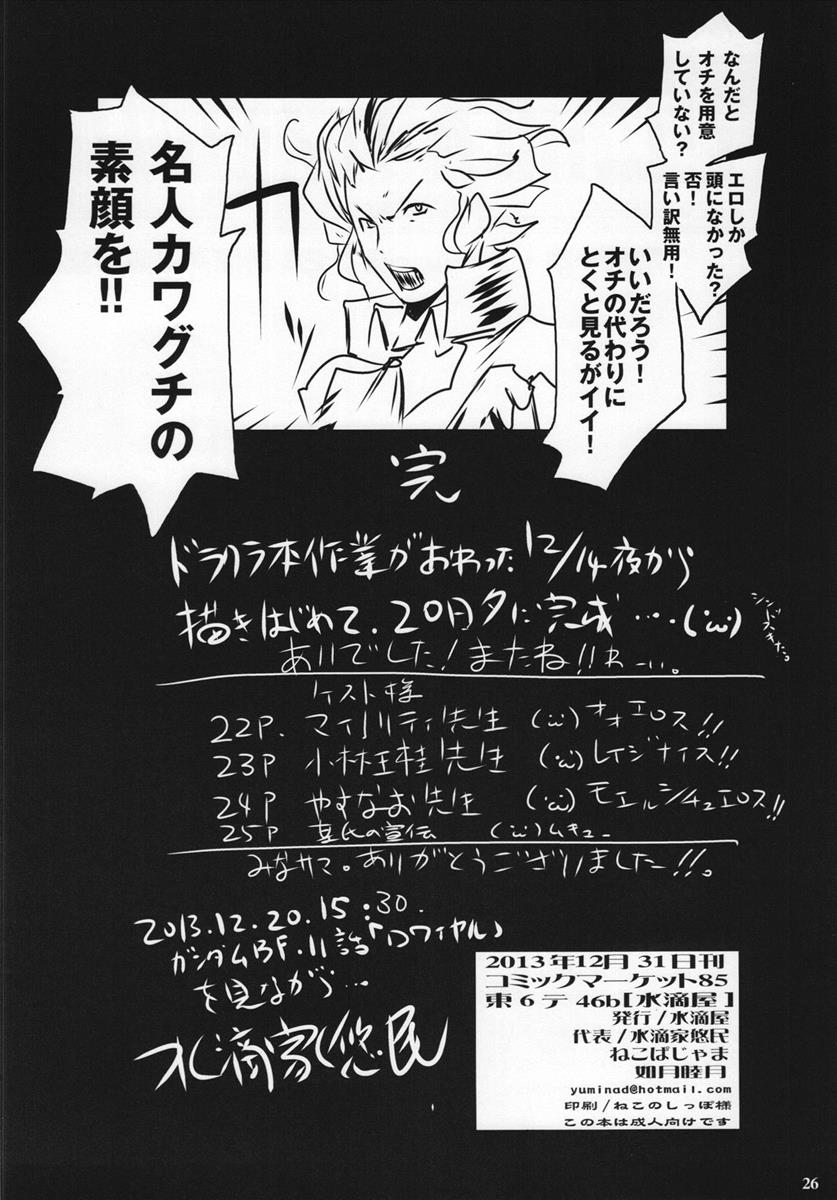 なんだと
オチを用意
していない？
エロしか
頭になかった？
否！
言い訳無用！
いいだろう！
オチの代わりに
とくと見るがイイ！
カッ
名人カワグチの
素顔を!!
完
ドラクラ本作業がおわった12/14夜から
描きはじめて、20日夕に完成・・・・(´ω`)
ありでした！またね!!
ゲスト様
22P. マイノリティ先生 (´ω`)オオエロス!!
23P 小林王桂先生 (´ω`)レイジナイス!!
24P やすなお先生 (´ω`)モエルシチュエロス!!
25P 某氏の宣伝 (´ω`)ムキュー
みなサマ。ありがとうございました!!。
2013.12.20.15:30.
ガンダムBF.11話「ロワイヤル」
を見ながら…
水滴家悠民
2013年12月31日刊
コミックマーケット85
東6テ46b[水滴屋]
発行/水滴屋
代表/水滴家悠民
ねこぱじゃま
如月睦月
yuminad@hotmail.com
印刷/ねこのしっぽ様
この本は成人向けです
26